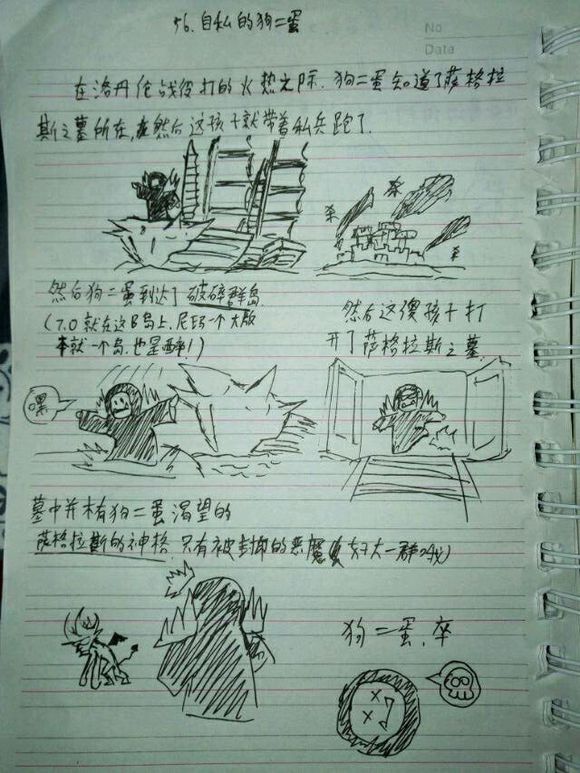 56. 自私的狗二蛋
No
Date
在洛丹伦战役打的火热之际. 狗二蛋知道了萨格拉
斯之墓所在, 然后这孩子就带着私兵跑了.
杀
杀
杀
然后狗二蛋到达了破碎群岛
(7.0就在这B岛上, 尼玛一个大版
本就一个岛, 也是醉!)
然后这傻孩子打
开了萨格拉斯之墓.
嘿
墓中并木有狗二蛋渴望的
萨格拉斯的神格, 只有被封印的恶魔(好大一群
狗二蛋, 卒